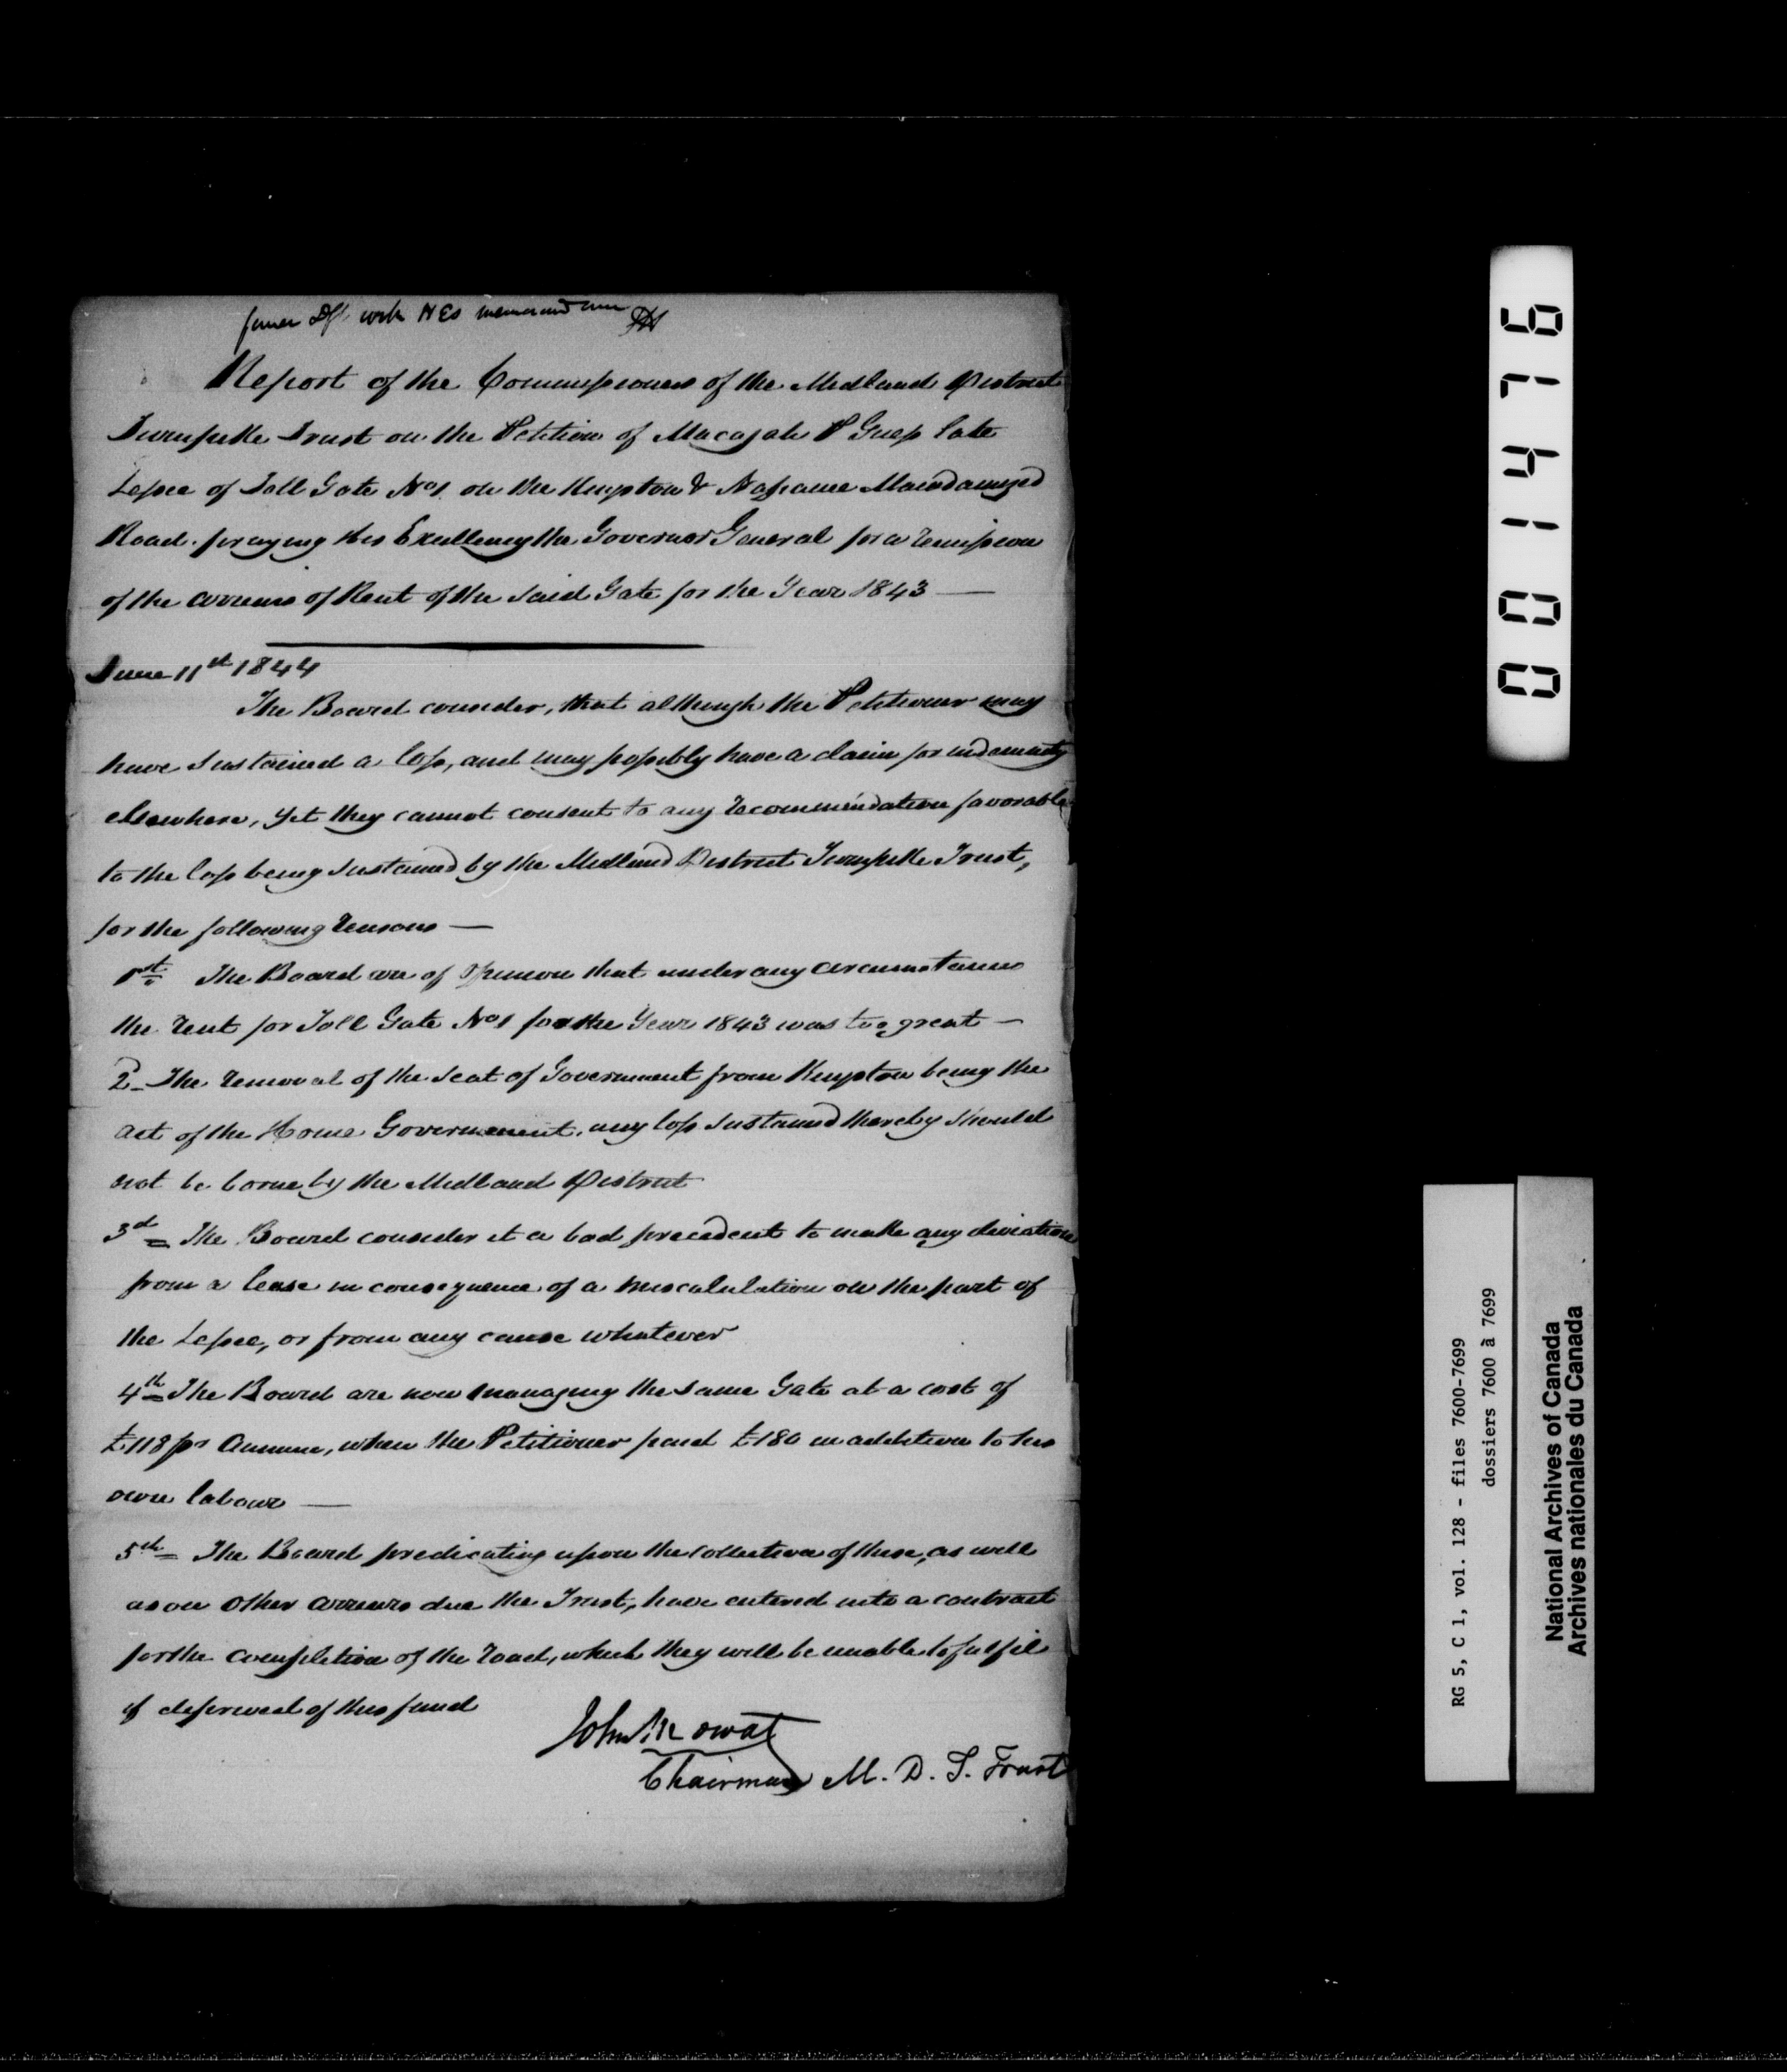 with HEs memorandum
Report of the Commissioners of the Midland District
Turnpike Trust on the Petition of Macajah P Guess late
Lessee of Toll Gate No 1 on the Kingston & Napanee Macadamized
Road. praying His Excellency the Governor General for a remission
of the arrears of Rent of the said Gate for the Year 1843 —
June 11th 1844
The Board consider, that although the Petitioner may
have sustained a loss, and may possibly have a claim for indemnity
elsewhere, yet they cannot consent to any recommendation favorable
to the loss being sustained by the Midland District Turnpike Trust,
for the following reasons —
1st The Board are of opinion that under any circumstances
the rent for Toll Gate No 1 for the Year 1843 was too great —
2d The removal of the seat of Government from Kingston being the
act of the Home Government, any loss sustained thereby should
not be borne by the Midland District
3d The Board consider it a bad precedent to make any deviation
from a lease in consequence of a miscalulation on the part of
the Lessee, or from any cause whatever
4th The Board are now managing the same Gate at a cost of
£118 pr Annum, when the Petitioner paid £180 in addition to his
own labour —
5th The Board predicating upon the collection of these, as well
as on other arrears due the Trust, have entered into a contract
for the completion of the road, which they will be unable to fulfil
if deprived of this fund
John Mowat
Chairman M. D. T. Trust
001476
RG 5, C 1, vol. 128 - files 7600-7699
dossiers 7600 à 7699
National Archives of Canada
Archives nationales du Canada